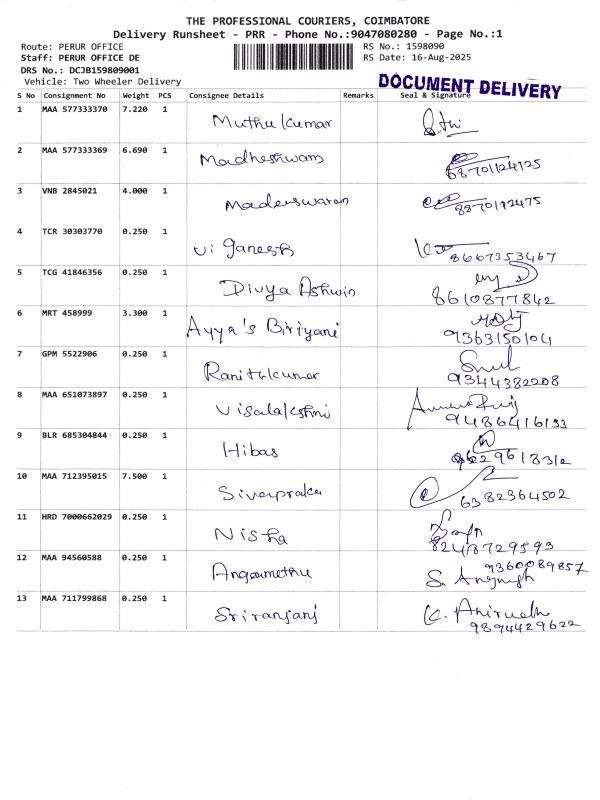 THE PROFESSIONAL COURIERS, COIMBATORE
Delivery Runsheet - PRR - Phone No.:9047080280 - Page No.:1
Route: PERUR OFFICE RS No.: 1598090
Staff: PERUR OFFICE DE RS Date: 16-Aug-2025
DRS No.: DCJB159809001
Vehicle: Two Wheeler Delivery
DOCUMENT DELIVERY
S No Consignment No Weight PCS Consignee Details Remarks Seal & Signature
1 MAA 577333370 7.220 1 Muthu kumar
2 MAA 577333369 6.690 1 Madheshwaran
3 VNB 2845021 4.000 1 Madeswaran
4 TCR 30303770 0.250 1 Vi Ganesh 8667353467
5 TCG 41846356 0.250 1 Divya Ashwin 8610877842
6 MRT 458999 3.300 1 Ayya's Biriyani 9363150104
7 GPM 5522906 0.250 1 Ranithkumar 9344382208
8 MAA 651073897 0.250 1 Visalakshmi 9486416133
9 BLR 685304844 0.250 1 Hibas
10 MAA 712395015 7.500 1 6382364502
11 HRD 7000662029 0.250 1 Nisha
12 MAA 94560588 0.250 1 9360089857
13 MAA 711799868 0.250 1 Sriranjani K. Anirudh
9894429622